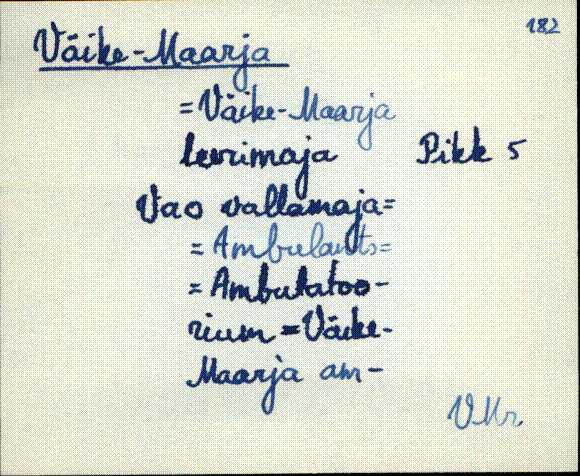 182
Väike-Maarja
=Väike-Maarja
leerimaja Pikk 5
Vao vallamaja=
=Ambulants=
=Ambulatoo-
rium=Väike-
Maarja am-
VMr.